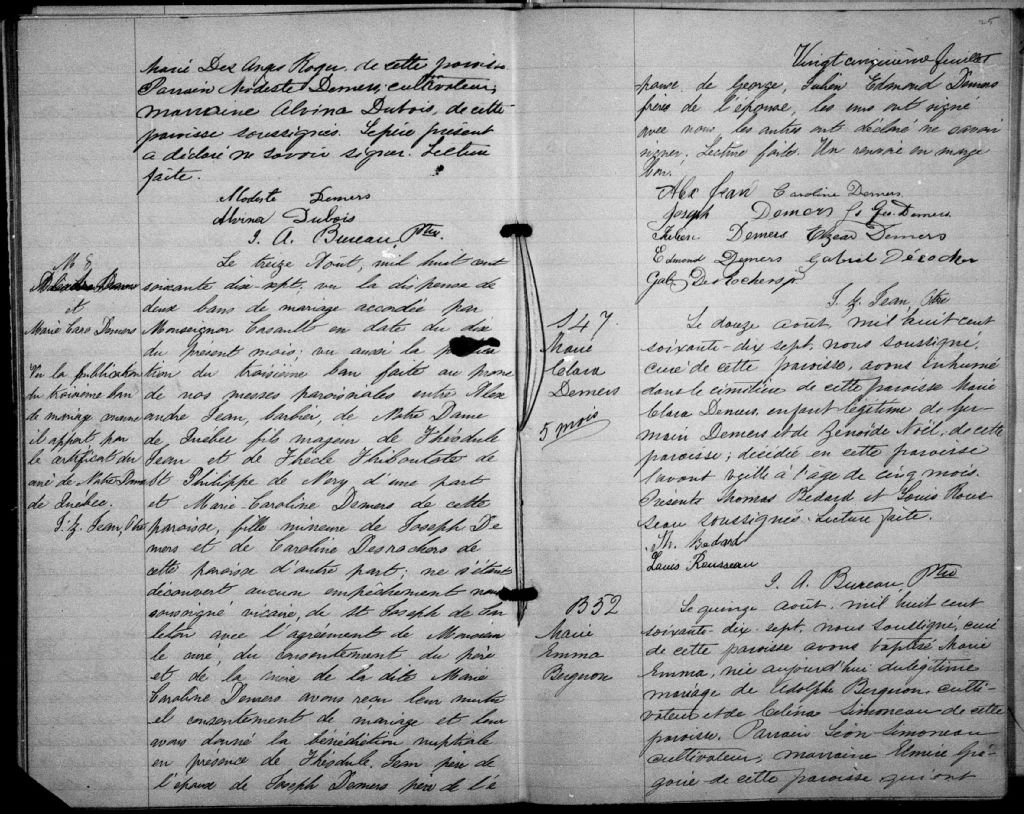 Marie Des Anges Roger de cette paroisse
Parrain Modeste Demers, cultivateur,
marraine Alvina Dubois, de cette
paroisse soussignés. Le père présent
a déclaré ne savoir signer. Lecture
faite.
Modeste Demers
Alvina Dubois
J. A. Bureau, Ptre.
M 8
et
Marie Caro Demers
Vu la publication
du troisième ban
de mariage comme
il appert par
le certificat du
curé de Notre Dame
de Québec.
J. Z. Jean, Ptre
Le treize Août, mil huit cent
soixante dix-sept, vu la dispense de
deux bans de mariage accordée par
Monseigneur Cazault en date du dix
du présent mois; vu aussi la
tion du troisième ban faite au prone
de nos messes paroissiales entre Alex
andre Jean, barbier, de Notre Dame
de Québec fils majeur de Théodule
Jean et de Thècle Thiboutote de
St Philippe de Nery d'une part
et Marie Caroline Demers de cette
paroisse, fille mineure de Joseph De
mers et de Caroline Desrochers de
cette paroisse d'autre part; ne s'étant
découvert aucun empêchement nous
soussigné vicaire, de St Joseph de
avec l'agrément de Monsieur
le curé, du consentement du père
et de la mère de la dite Marie
Caroline Demers avons reçu leur mutu
el consentement de mariage et leur
avons donné la bénédiction nuptiale
en présence de Théodule Jean père de
l'époux de Joseph Demers père de l'é
25
Vingt cinquième feuillet
pouse, de George, Julien Edmond Demers
frères de l'épouse, les uns ont signé
avec nous, les autres ont déclaré ne savoir
signer. Lecture faite. Un renvoi en marge
bon.
Alex Jean Caroline Demers
Joseph Demers Js Geo. Demers
Julien Demers Elzear Demers
Edmond Demers Gabriel Décocher
Gab Desrochers
J. Z. Jean, Ptre
S 47.
Marie
Clara
Demers
5 mois
Le douze août, mil huit cent
soixante-dix sept, nous soussigné,
curé de cette paroisse, avons inhumé
dans le cimetière de cette paroisse Marie
Clara Demers, enfant légitime de Ger
main Demers et de Zénoïde Noël, de cette
paroisse; décédée en cette paroisse
l'avant veille à l'âge de cinq mois.
Présents Thomas Bedard et Louis Rous
seau soussignés. Lecture faite.
Th. Bedard
Louis Rousseau
J. A. Bureau Ptre
B 52
Marie
Emma
Bergeron
Le quinze août, mil huit cent
soixante-dix-sept, nous soussigné, curé
de cette paroisse avons baptisé Marie
Emma, née aujourd'hui du légitime
mariage de Adolphe Bergeron, culti-
vateur et de Célina Simoneau de cette
paroisse. Parrain Léon Simoneau
cultivateur, marraine Elmire Gré-
goire de cette paroisse, qui ont